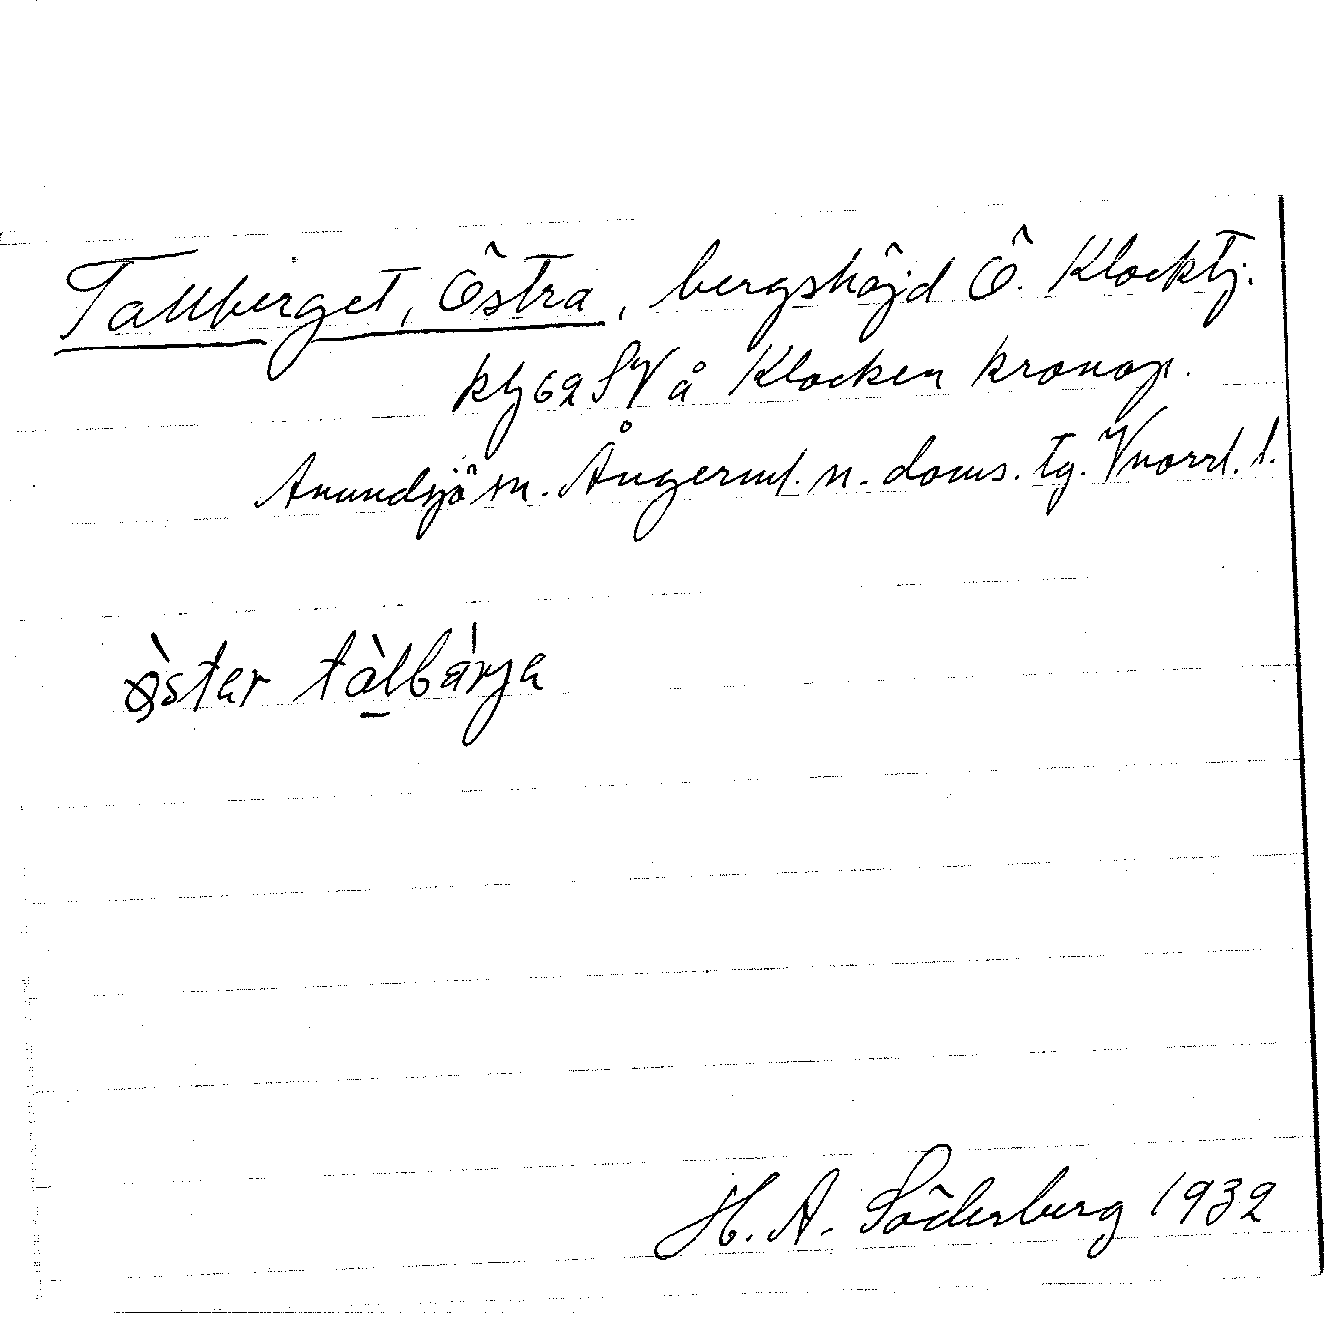 Tallberget, Östra, bergshöjd Ö. Klocktj.
kbl 62 SV å Klocken kronop.
Anundsjö sn. Ångerml. n. doms. tg. Vnorrl. l.
òstar tàlbárja
H. A. Söderberg 1932